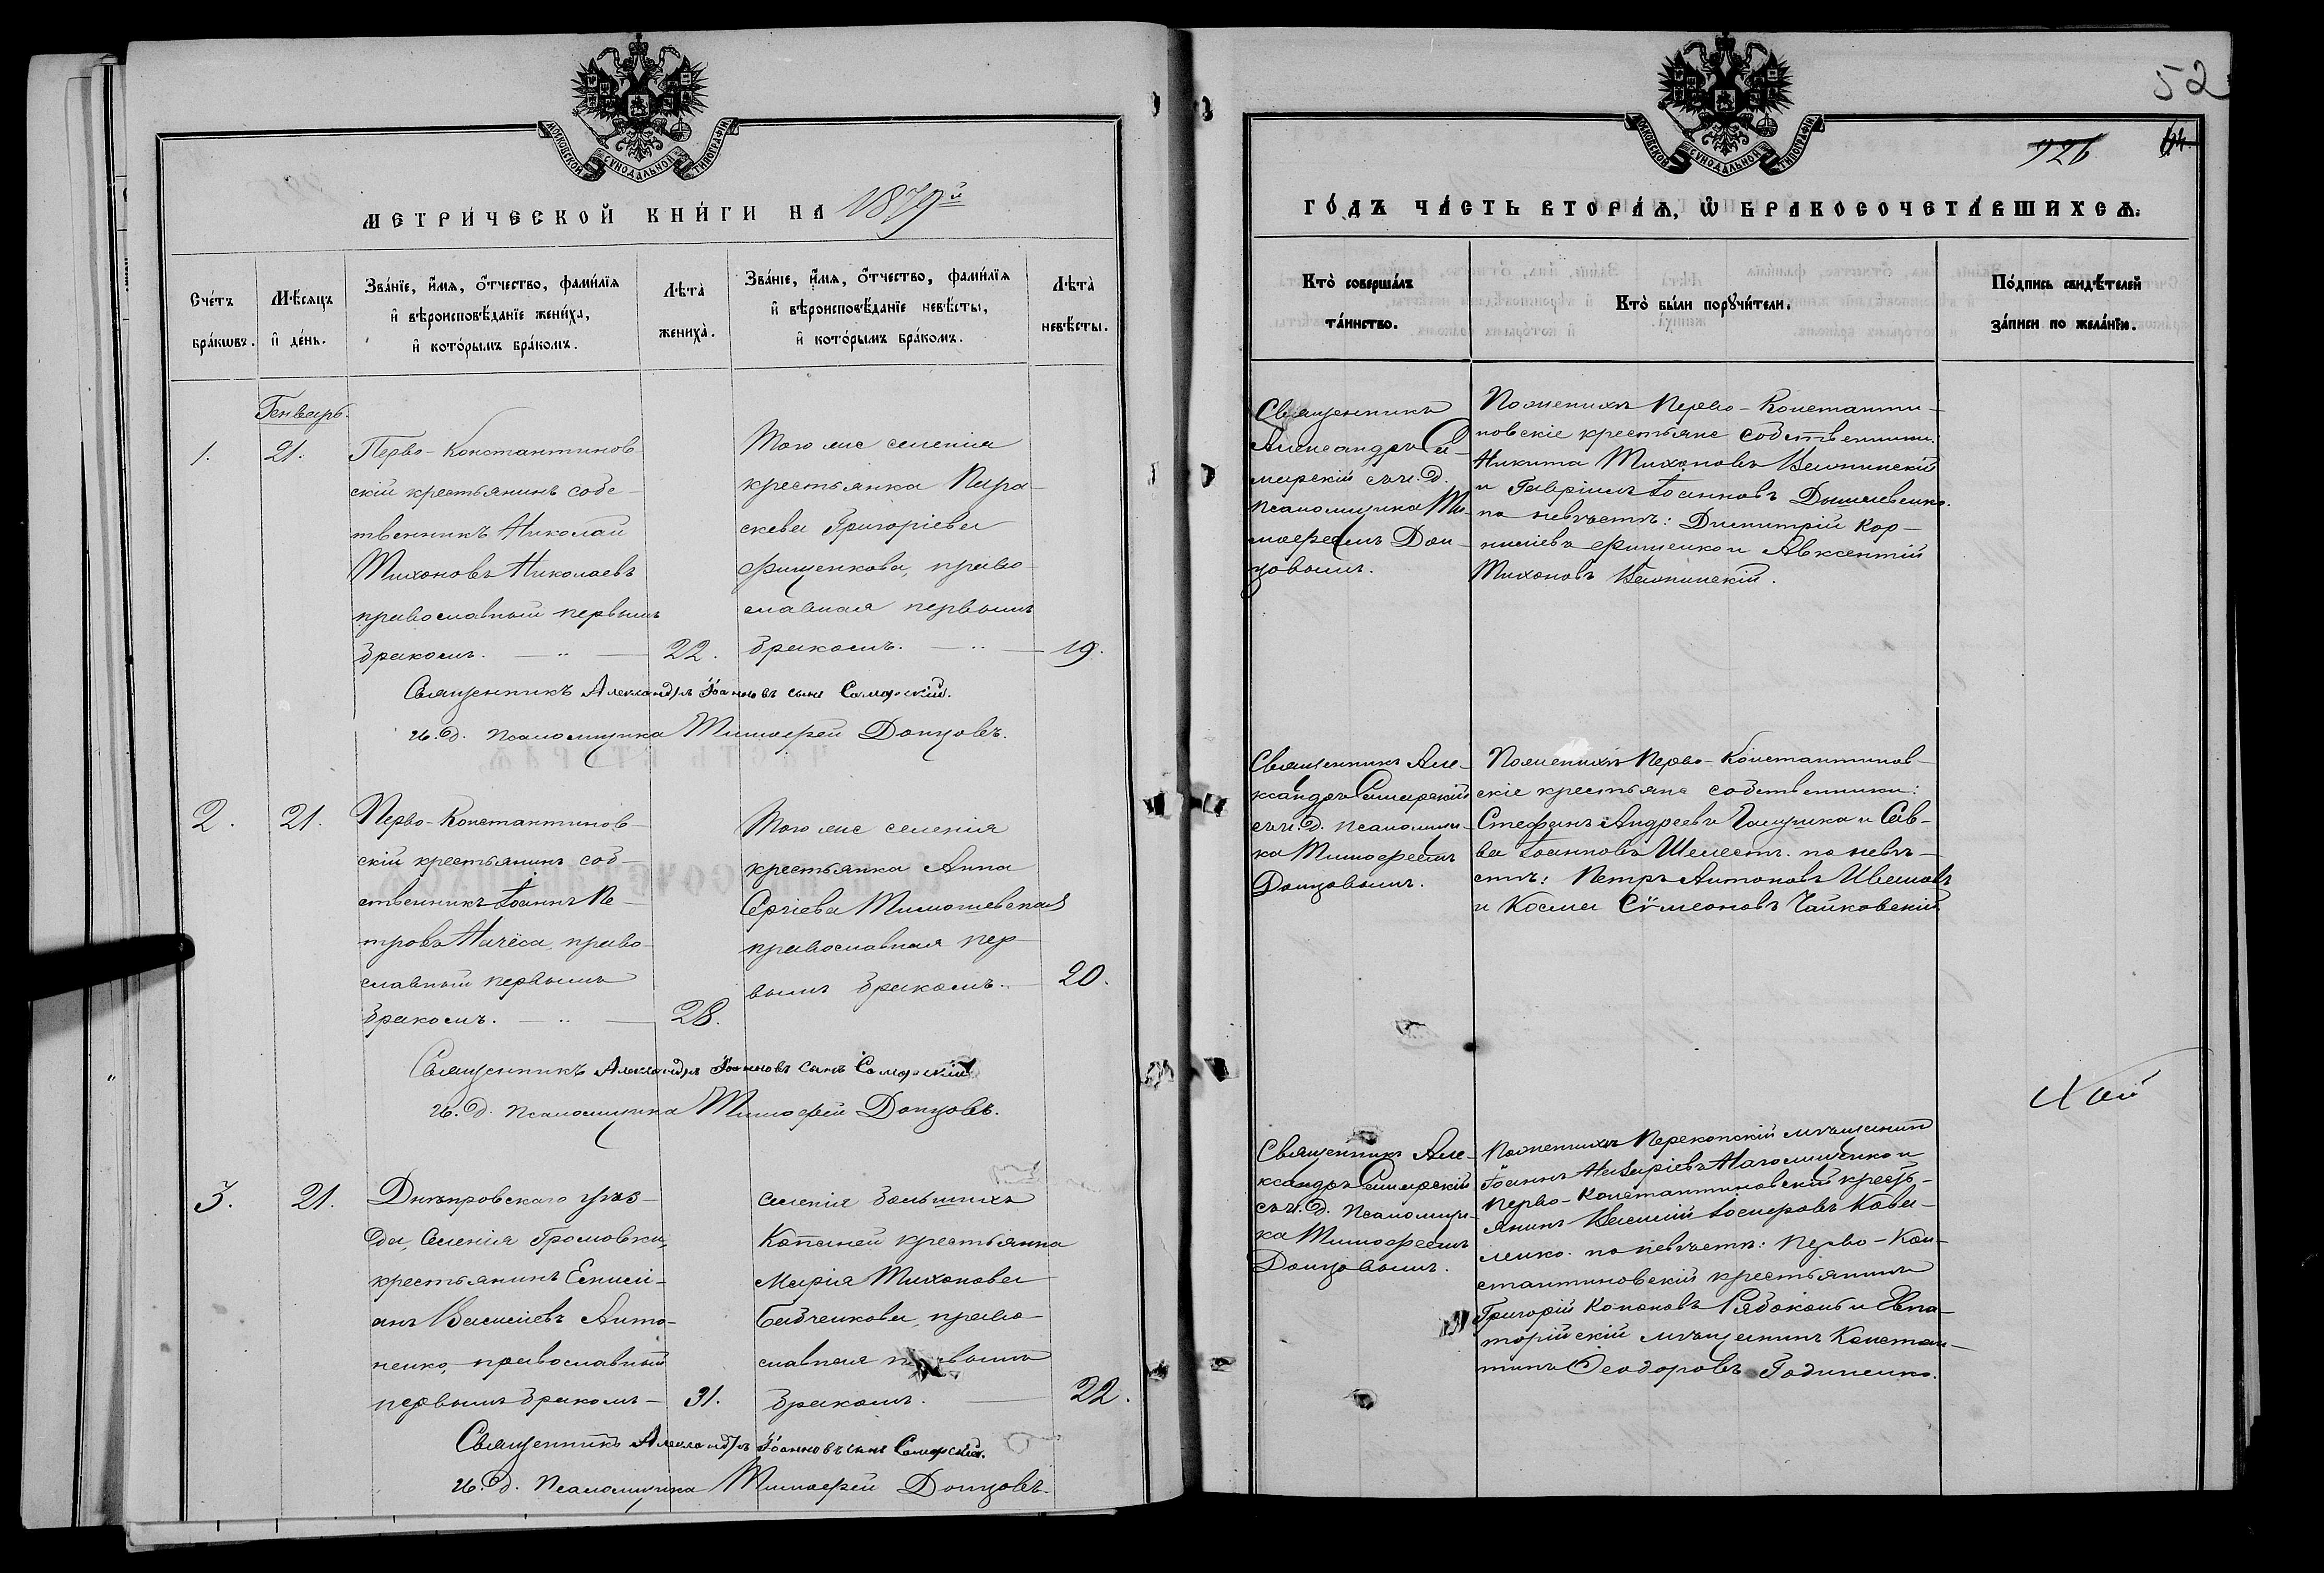 МОСКОВСКОЙ СѴНОДАЛЬНОЙ ТИПОГРАФІИ
МЕТРИ́ЧЕСКОЙ КНИ́ГИ НА 1879й
Сче́тъ бра́кѡвъ.
Мѣ́сяцъ и҆ де́нь.
Зва́нїе, и҆́мя, ѻ҆́тчество, фами́лїя
и҆ вѣроисповѣ́данїе жениха̀,
и҆ кото́рымъ бра́комъ.
Лѣта̀ жениха̀.
Зва́нїе, и҆́мя, ѻ҆́тчество, фами́лїя
и҆ вѣроисповѣ́данїе невѣ́сты,
и҆ кото́рымъ бра́комъ.
Лѣта̀ невѣ́сты.
Генварь.
1.
21.
Перво-Константинов
скій крестьянинъ соб-
ственникъ Николай
Тихоновъ Николаевъ
православный первымъ
бракомъ. — " —
22.
Того же селенія
крестьянка Пара-
скева Григоріева
Фищенкова, право-
славная первымъ
бракомъ. — " —
19.
Священникъ Александръ Іоанновъ сынъ Самарскій.
И. д. Псаломщика Тимофей Донцовъ.
2.
21.
Перво-Константинов-
скій крестьянинъ соб-
ственникъ Іоаннъ Пе-
тровъ Начёса, право-
славный первымъ
бракомъ. — " —
28.
Того же селенія
крестьянка Анна
Сергіева Тимошевская
православная пер-
вымъ бракомъ.
20.
Священникъ Александръ Іоанновъ сынъ Самарскій
И. д. Псаломщика Тимофей Донцовъ.
3.
21.
Днѣпровскаго уѣз-
да, Селенія Громовки,
крестьянинъ Емили-
анъ Василіевъ Анто-
ненко, православный
первымъ бракомъ —
31.
селенія Большихъ
Копаней крестьянка
Марія Тихонова
Бабченкова, право-
славная первымъ
бракомъ. —
22.
Священникъ Александръ Іоанновъ сынъ Самарскій.
И. д. Псаломщика Тимофей Донцовъ.
52
926
МОСКОВСКОЙ СѴНОДАЛЬНОЙ ТИПОГРАФІИ
ГО́ДЪ ЧА́СТЬ ВТОРА́Ѧ, Ѡ҆ БРАКОСОЧЕТА́ВШИХСѦ.
Кто̀ соверша́лъ та́инство.
Кто̀ бы́ли порꙋчи́тели.
По́дпись свидѣ́телей за́писи по жела́нїю.
Священникъ
Александръ Са-
марскій съ и. д.
псаломщика Ти-
мофеемъ Дон-
цовымъ.
По женихѣ Перво-Константи-
новскіе крестьяне собственники:
Никита Тихоновъ
и Гавріилъ Іоанновъ
по невѣстѣ: Димитрій Кор-
ниліевъ Фищенко и Авксентій
Тихоновъ
Священникъ Але-
ксандръ Самарскій
съ и. д. псаломщи-
ка Тимофеемъ
Донцовымъ.
По женихѣ Перво-Константинов-
скіе крестьяне собственники:
Стефанъ Андреевъ и Сав-
ва Іоанновъ Шелестъ. по невѣ-
стѣ: Петръ Антоновъ Ивашовъ
и Косма Сѵмеоновъ Чайковскій.
Священникъ Але-
ксандръ Самарскій
съ и. д. Псаломщи-
ка Тимофеемъ
Донцовымъ.
По женихѣ Перекопскій мѣщанинъ
Іоаннъ
Перво-Константиновскій кресть-
янинъ Василій Іосифовъ Кова-
ленко. по невѣстѣ: Перво-Кон-
стантиновскій крестьянинъ
Григорій Кононовъ Рябоконь и Евпа-
торійскій мѣщанинъ Констан-
тинъ Ѳеодоровъ Годиненко.